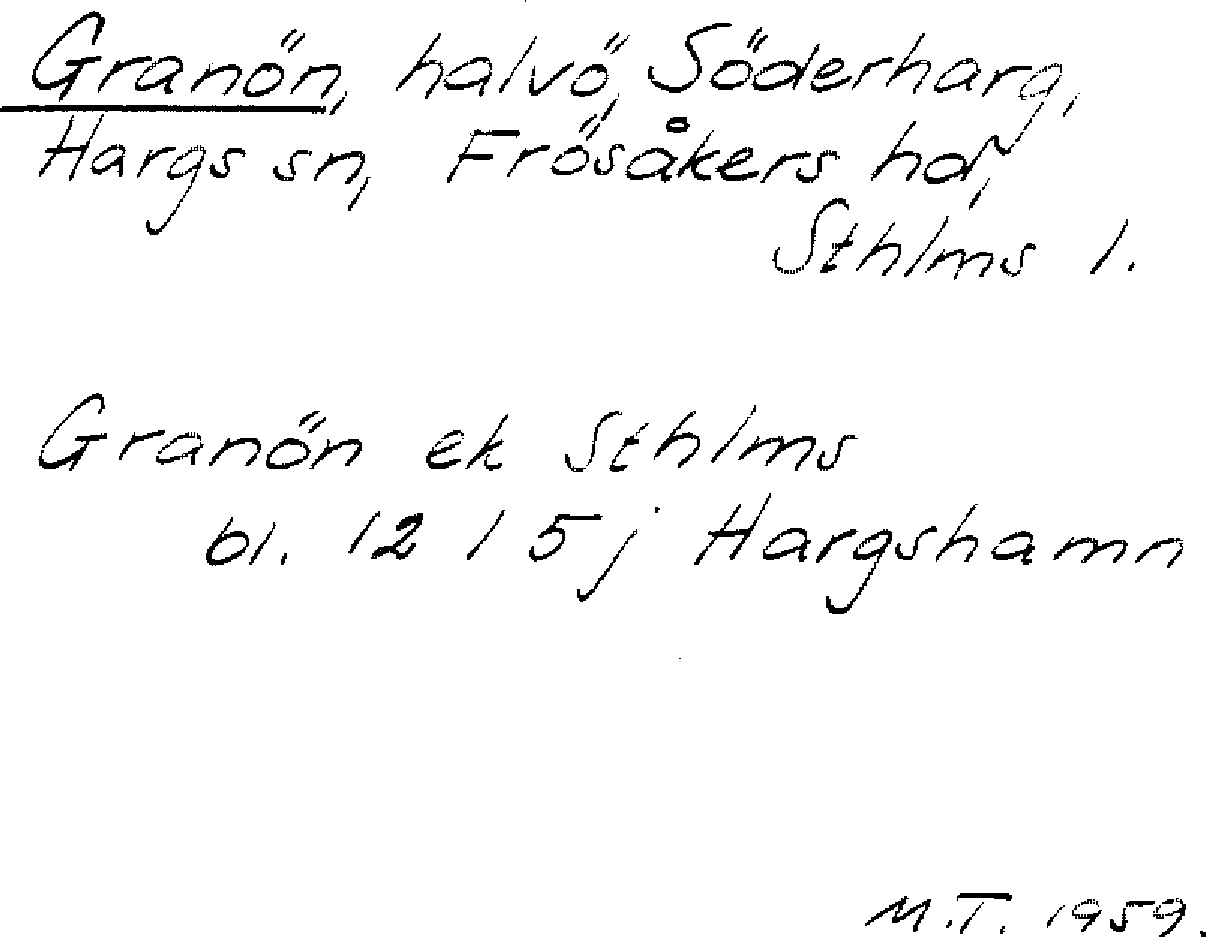 Granön, halvö, Söderharg,
Hargs sn, Frösåkers hd,
Sthlms l.
Granön ek Sthlms
bl. 12 I 5j Hargshamn
M.T. 1959.